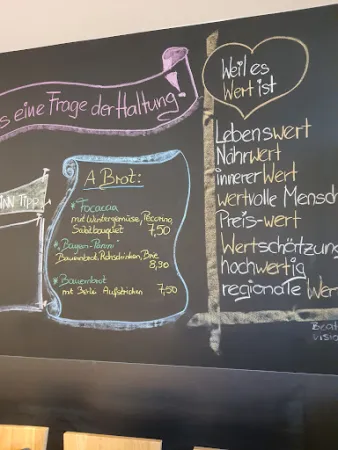 s eine Frage der Haltung!
Weil es
Wert ist
NN TIPP
A Brot:
Focaccia
mit Wintergemüse, Pecorino
Salatbouquet 7,50
Bauernbrot, Rohschinken, Brie
8,90
Bauernbrot
mit 3erlei Aufstrichen 7,50
Lebenswert
Nährwert
innerer Wert
wertvolle Mensch
Preis-wert
Wertschötzung
hochwertig
regionale Wer